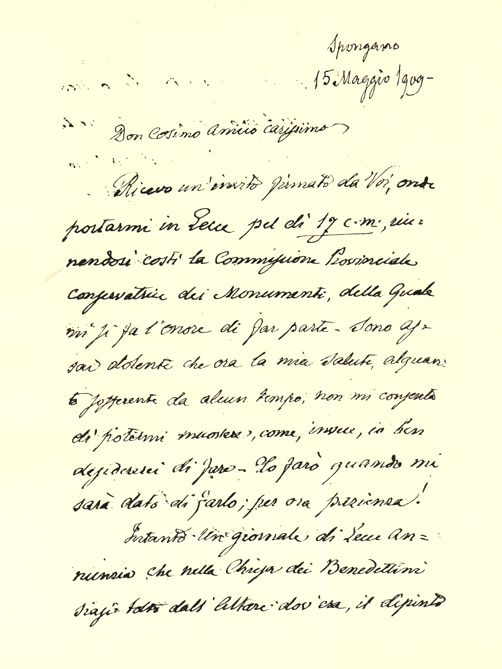 Spongano
15 Maggio 1909-
Don Cosimo amico carissimo
Ricevo un'invito firmato da Voi, onde
portarmi in Lecce pel dì 17 c. m., riu=
nendosi costì la Commissione Provinciale
conservatrice dei Monumenti, della quale
mi si fa l'onore di far parte - Sono as=
sai dolente che ora la mia salute, alquan=
to sofferente da alcun tempo, non mi consente
di potermi muovere, come, invece, io ben
desidererei di fare - Lo farò quando mi
sarà dato di farlo; per ora pazienza!
Intanto un giornale di Lecce An=
nunzia che nella Chiesa dei Benedettini
siasi tolto dall'Altare dov'era, il dipinto